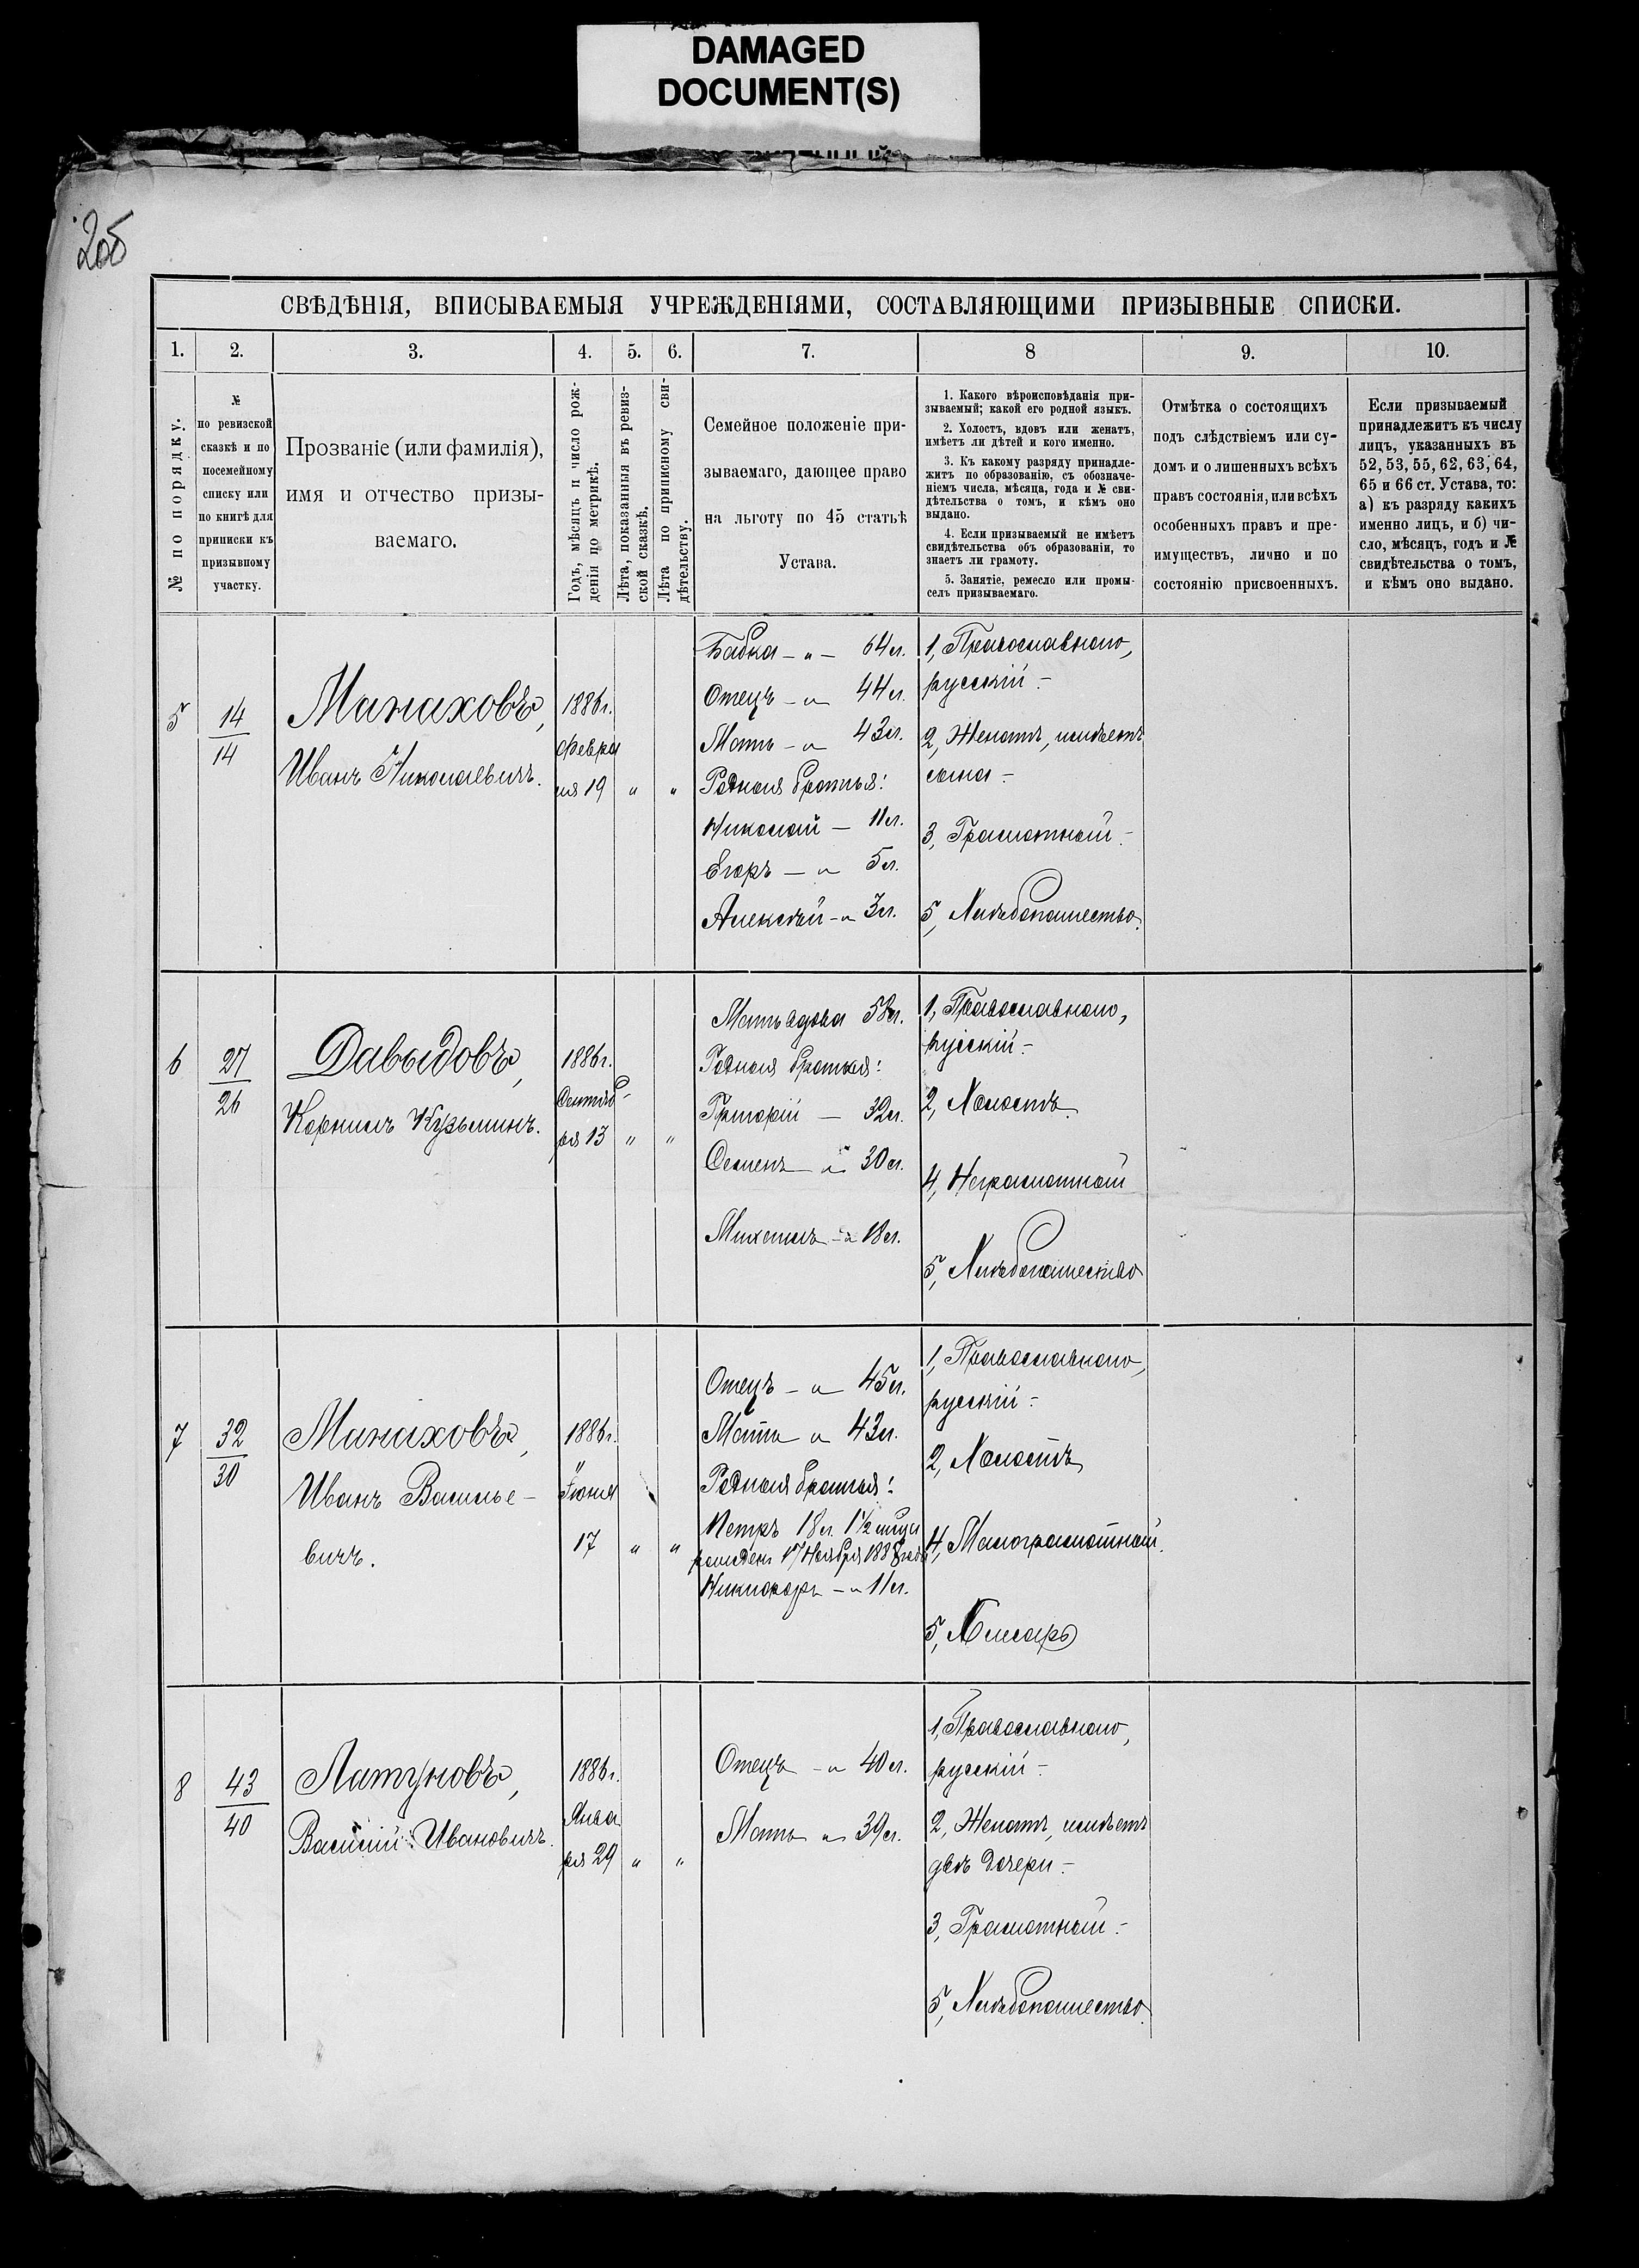 DAMAGED
DOCUMENT(S)
205
СВѢДѢНІЯ, ВПИСЫВАЕМЫЯ УЧРЕЖДЕНІЯМИ, СОСТАВЛЯЮЩИМИ ПРИЗЫВНЫЕ СПИСКИ.
1. 2. 3. 4. 5. 6. 7. 8 9. 10.
№ по порядку.
№
по ревизской
сказкѣ и по
посемейному
списку или
по книгѣ для
приписки къ
призывному
участку.
Прозваніе (или фамилія),
имя и отчество призы-
ваемаго.
Годъ, мѣсяцъ и число рож-
денія по метрикѣ.
Лѣта, показанныя въ ревиз-
ской сказкѣ.
Лѣта по приписному сви-
дѣтельству.
Семейное положеніе при-
зываемаго, дающее право
на льготу по 45 статьѣ
Устава.
1. Какого вѣроисповѣданія при-
зываемый; какой его родной языкъ.
2. Холостъ, вдовъ или женатъ,
имѣетъ ли дѣтей и кого именно.
3. Къ какому разряду принадле-
житъ по образованію, съ обозначе-
ніемъ числа, мѣсяца, года и № сви-
дѣтельства о томъ, и кѣмъ оно
выдано.
4. Если призываемый не имѣетъ
свидѣтельства объ образованіи, то
знаетъ ли грамоту.
5. Занятіе, ремесло или промы-
селъ призываемаго.
Отмѣтка о состоящихъ
подъ слѣдствіемъ или су-
домъ и о лишенныхъ всѣхъ
правъ состоянія, или всѣхъ
особенныхъ правъ и пре-
имуществъ, лично и по
состоянію присвоенныхъ.
Если призываемый
принадлежитъ къ числу
лицъ, указанныхъ въ
52, 53, 55, 62, 63, 64,
65 и 66 ст. Устава, то:
а) къ разряду какихъ
именно лицъ, и б) чи-
сло, мѣсяцъ, годъ и №
свидѣтельства о томъ,
и кѣмъ оно выдано.
5
14
14
Манаховъ,
Иванъ Николаевичъ.
1886г.
Февра
ля 19 " "
Бабка - " - 64 л.
Отецъ - " 44 л.
Мать - " 43 л.
Родныя братья:
Николай - 11 л.
Егоръ - " 5 л.
Алексѣй - " 3 л.
1, Православнаго,
русскій.-
2, Женатъ, имѣетъ
сына.-
3, Грамотный.-
5, Хлѣбопашество.
6
27
26
Давыдовъ,
Корнилъ Кузьминъ.
1886г.
Сентяб-
ря 13 " "
Мать вдова 58 л.
Родныя братья:
Григорій - 32 л.
Семенъ - " 30 л.
Михаилъ - " 18 л.
1, Православнаго,
русскій.-
2, Холостъ.
4, Неграмотный
5, Хлѣбопашество
7
32
30
Манаховъ,
Иванъ Василье-
вичъ.
1886г.
Іюня
17 " "
Отецъ - " 45 л.
Мать " 43 л.
Родныя братья:
Петръ 18 л. 1½ мѣсяц
рожденъ 17 Ноября 1888 года
Никифоръ - " 11 л.
1, Православнаго,
русскій.-
2, Холостъ
4, Малограмотный.
5, Слесарь
8
43
40
Латуновъ,
Василій Ивановичъ.
1886г.
Янва
ря 29 " "
Отецъ - " 40 л.
Мать " 39 л.
1, Православнаго,
русскій.-
2, Женатъ, имѣетъ
двѣ дочери.-
3, Грамотный.-
5, Хлѣбопашество.